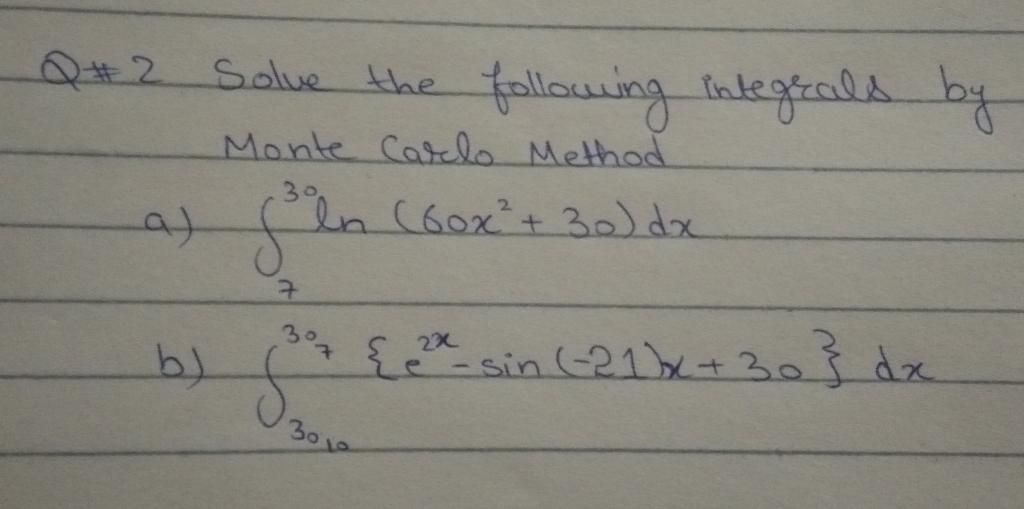 Q#2 Solve the following integrals by
Monte Carlo Method
a) ∫₇³⁰ ln (60x² + 30) dx
b) ∫ 30₁₀ 30₇ {e²ˣ - sin (-21)x + 30} dx